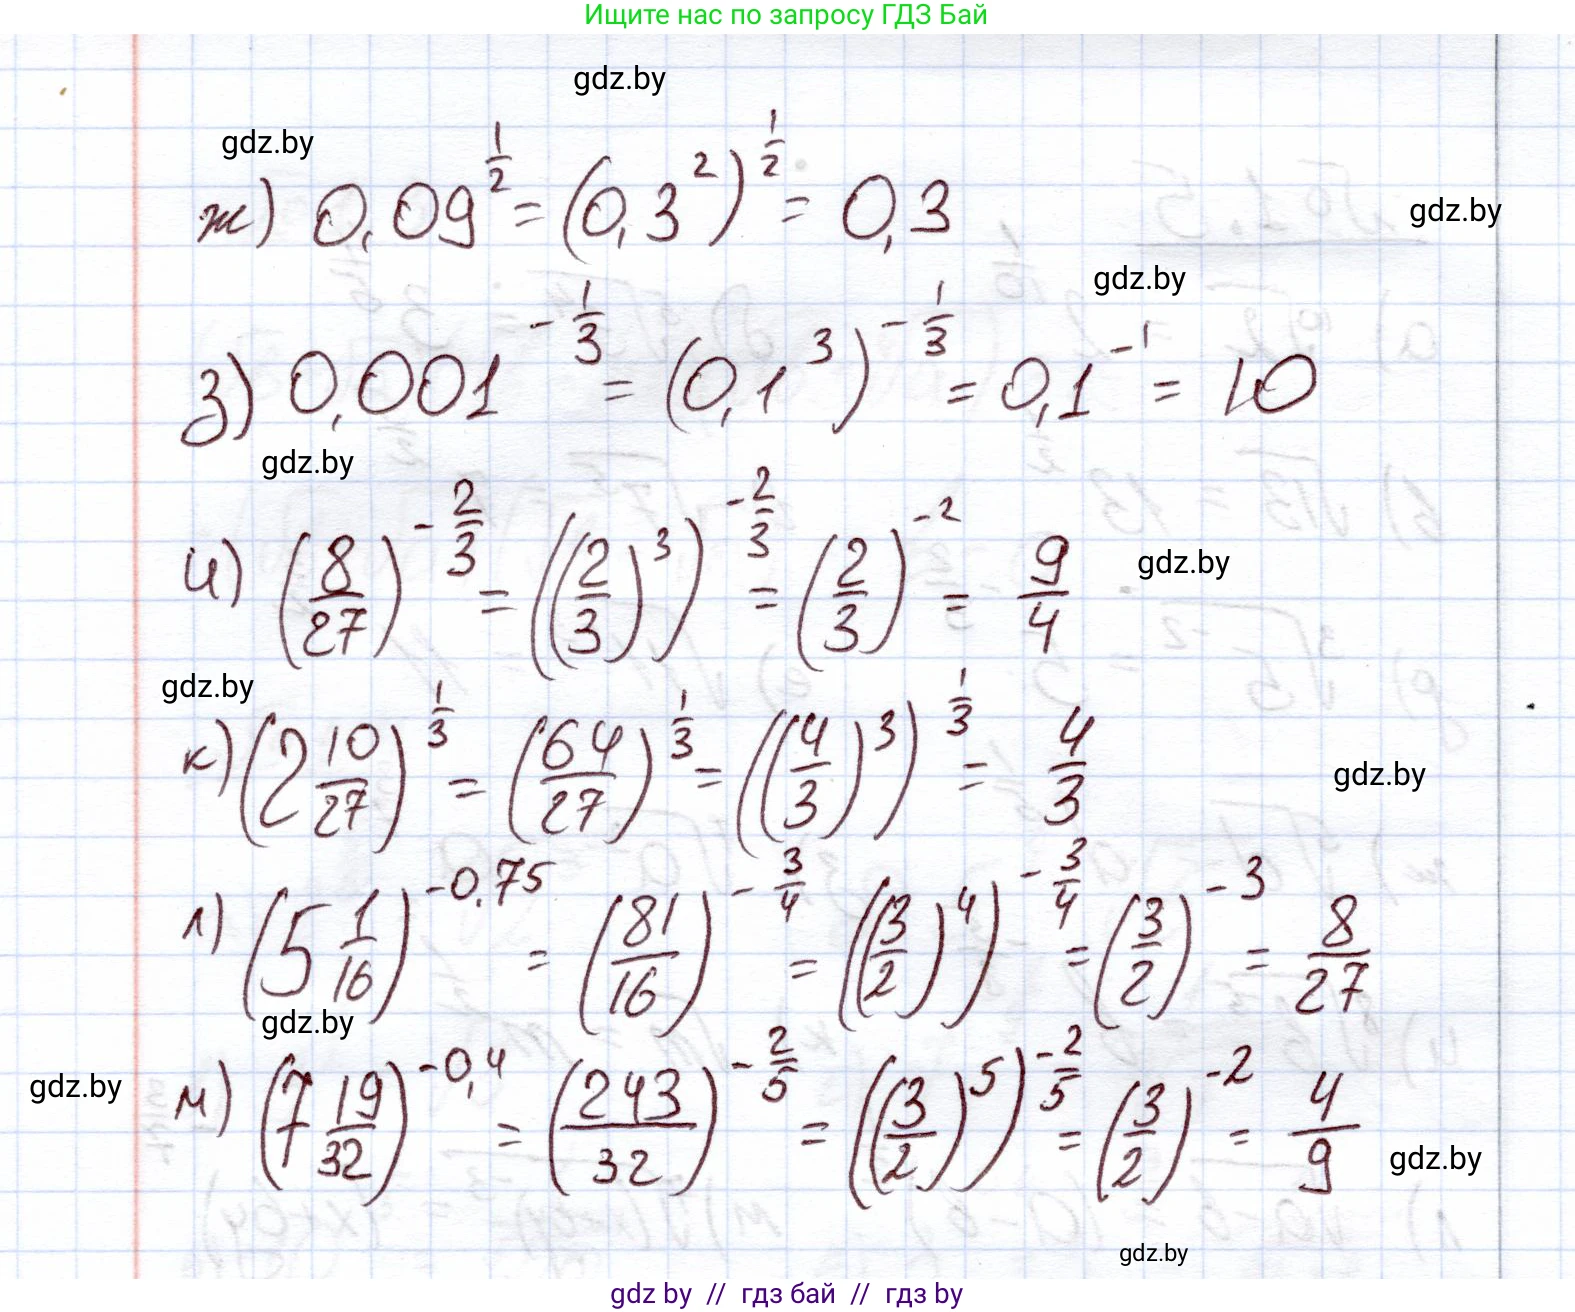 Ищите нас по запросу ГДЗ Бай
gdz.by
gdz.by
ж) 0,09^{1/2} = (0,3^2)^{1/2} = 0,3
gdz.by
gdz.by
з) 0,001^{-1/3} = (0,1^3)^{-1/3} = 0,1^{-1} = 10
gdz.by
и) (8/27)^{-2/3} = ((2/3)^3)^{-2/3} = (2/3)^{-2} = 9/4
gdz.by
gdz.by
к) (2 10/27)^{1/3} = (64/27)^{1/3} = ((4/3)^3)^{1/3} = 4/3
gdz.by
л) (5 1/16)^{-0,75} = (81/16)^{-3/4} = ((3/2)^4)^{-3/4} = (3/2)^{-3} = 8/27
gdz.by
gdz.by
м) (7 19/32)^{-0,4} = (243/32)^{-2/5} = ((3/2)^5)^{-2/5} = (3/2)^{-2} = 4/9
gdz.by
gdz.by
gdz by // гдз бай // gdz by